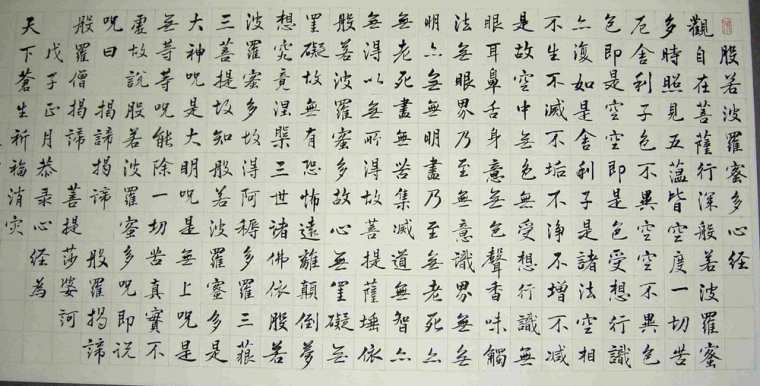 般若波羅蜜多心經
觀自在菩薩行深般若波羅蜜
多時照見五蘊皆空度一切苦
厄舍利子色不異空空不異色
色即是空空即是色受想行識
亦復如是舍利子是諸法空相
不生不滅不垢不淨不增不減
是故空中無色無受想行識無
眼耳鼻舌身意無色聲香味觸
法無眼界乃至無意識界無無
明亦無無明盡乃至無老死亦
無老死盡無苦集滅道無智亦
無得以無所得故菩提薩埵依
般若波羅蜜多故心無罣礙無
罣礙故無有恐怖遠離顛倒夢
想究竟涅槃三世諸佛依般若
波羅蜜多故得阿耨多羅三藐
三菩提故知般若波羅蜜多是
大神咒是大明咒是無上咒是
無等等咒能除一切苦真實不
虛故說般若波羅蜜多咒即說
咒曰 揭諦揭諦 般羅揭諦
般羅僧揭諦 菩提莎婆訶
戊子正月恭录心經為
天下蒼生祈福消灾